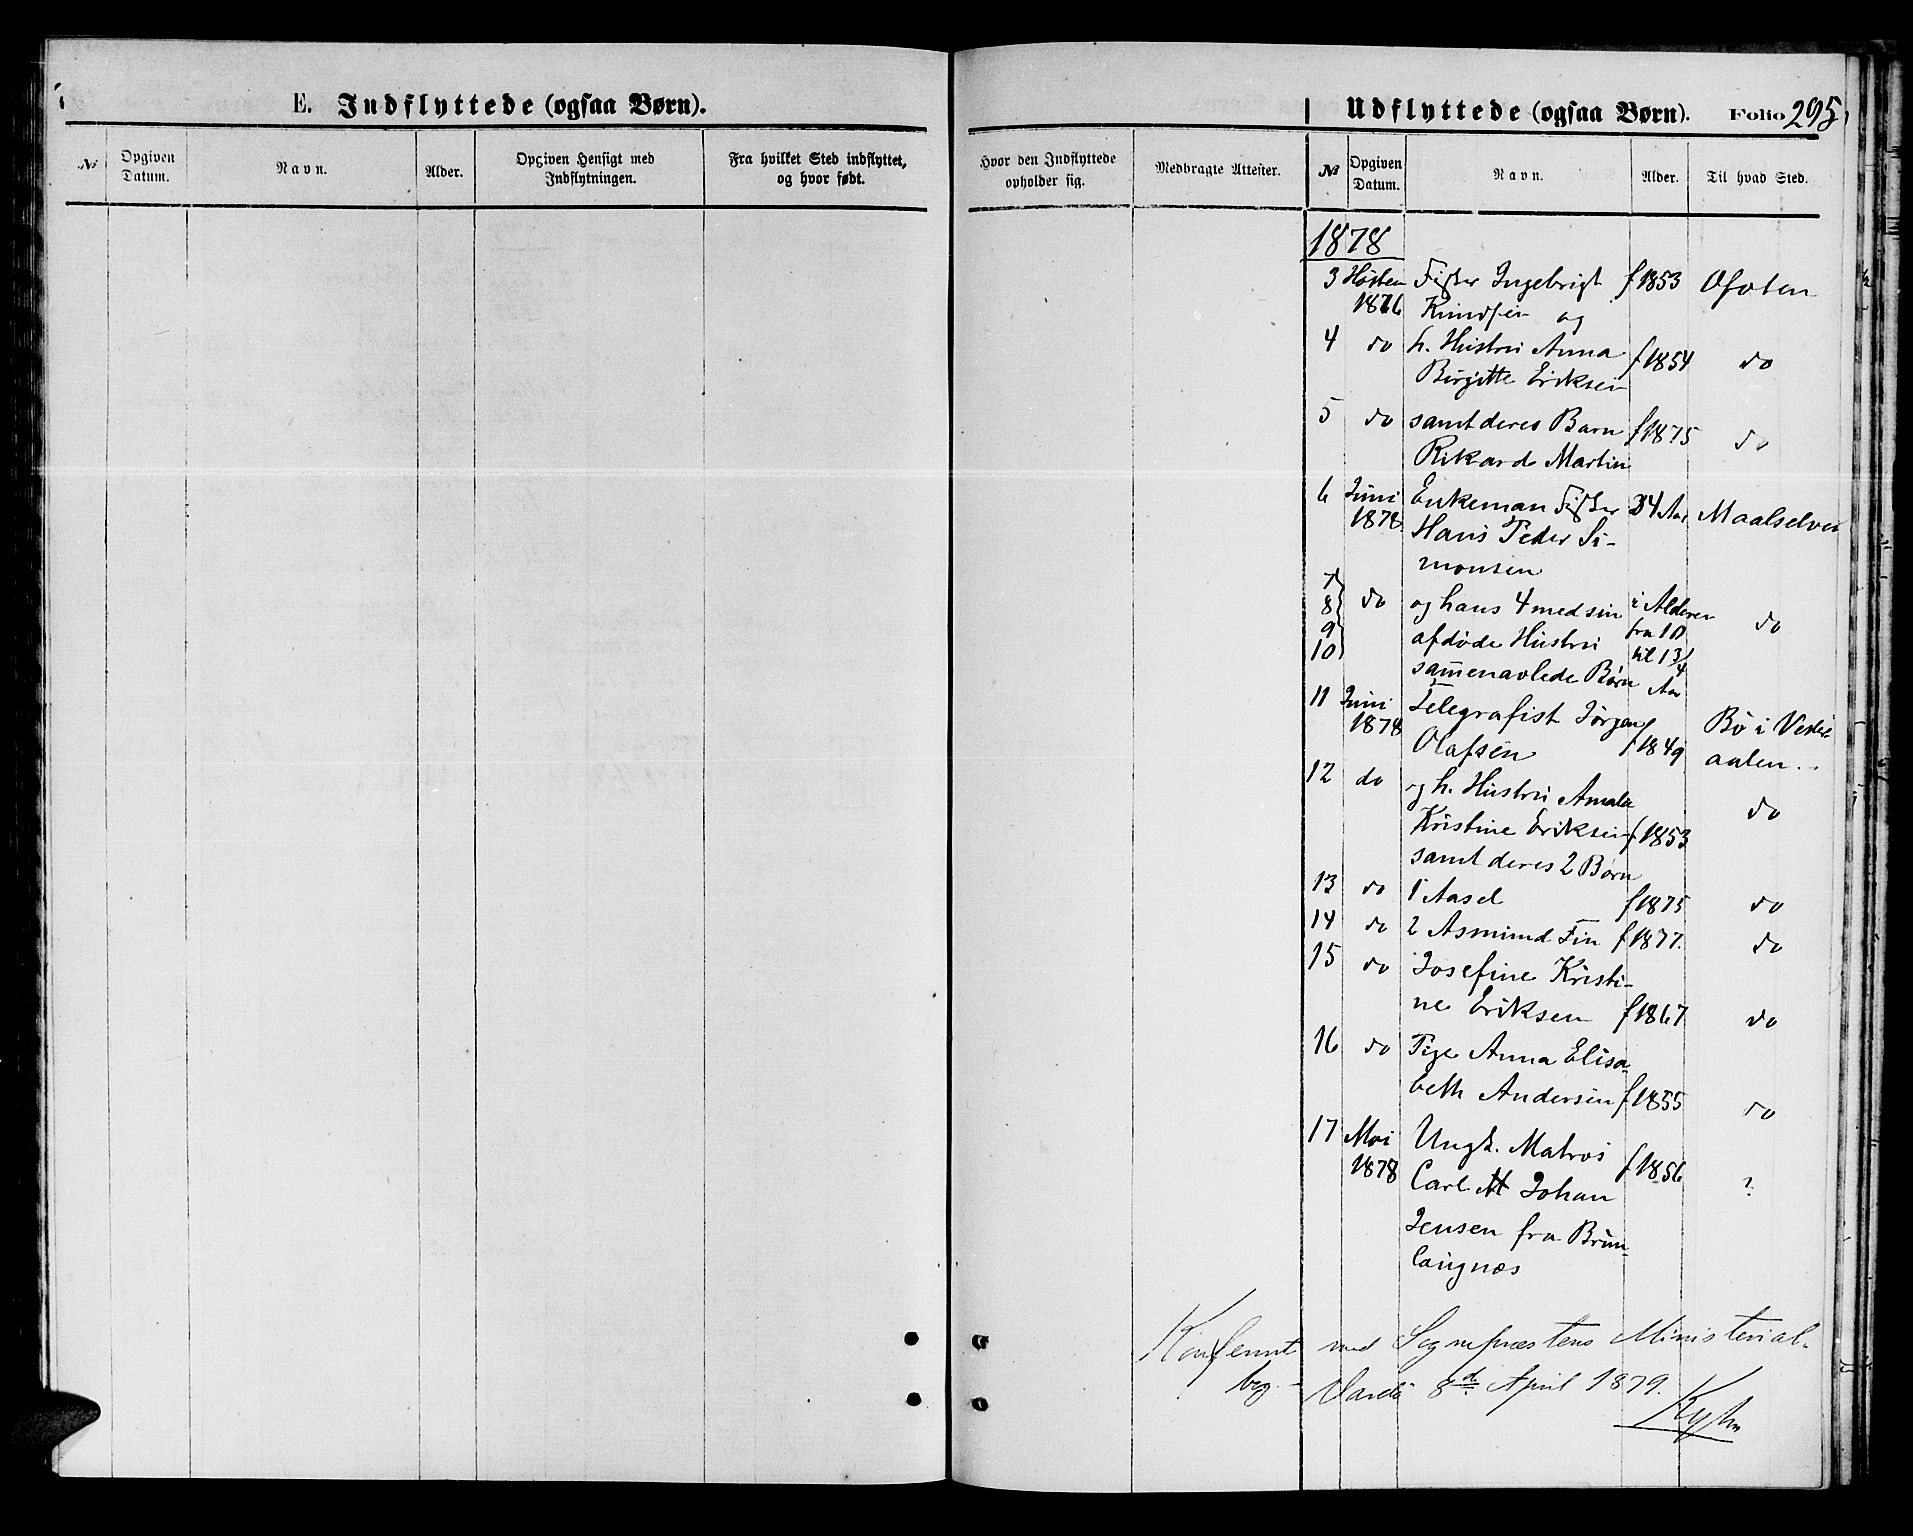 E. Indflyttede (ogsaa Børn).
№
Opgiven
Datum.
Navn.
Alder.
Opgiven Hensigt med
Indflytningen.
Fra hvilket Sted indflyttet,
og hvor født.
Hvor den Indflyttede
opholder sig.
Medbragte Attester.
Udflyttede (ogsaa Børn). Folio 295
№
Opgiven
Datum.
Navn.
Alder.
Til hvad Sted.
1878
3 Høsten Fisker Ingebrigt f 1853 Ofoten
1876 og
4 do h. Hustru Anna f 1854 do
Birgitte Eriksen
5 do samt deres Barn f 1875 do
Rikard Martin
6 Juni Enkeman Fisker 34 Aar Maalselven
1878 Hans Peder Si-
monsen
7
8 do og hans 4 med sin i Alderen do
9 afdøde Hustru fra 10
10 sam̅enavlede Børn til 1 3/4
Aar
11 Juni Telegrafist Jørgen Bø i Vester-
1878 Olafsen f 1849 aalen
12 do og h. Hustru Amalie do
Kristine Eriksen f 1853
samt deres 2 Børn
13 do 1 Aasel f 1875 do
14 do 2 Asmund Fin f 1877. do
15 do Josefine Kristi-
ne Eriksen f 1867 do
16 do Pige Anna Elisa-
beth Andersen f 1855 do
17 Mai Ungk. Matros
1878 Carl Johan f 1856 ?
Jensen fra Brun-
laugnæs
Konfereret med Sognepræstens Ministerial-
bog - Vardø 8d. April 1879.